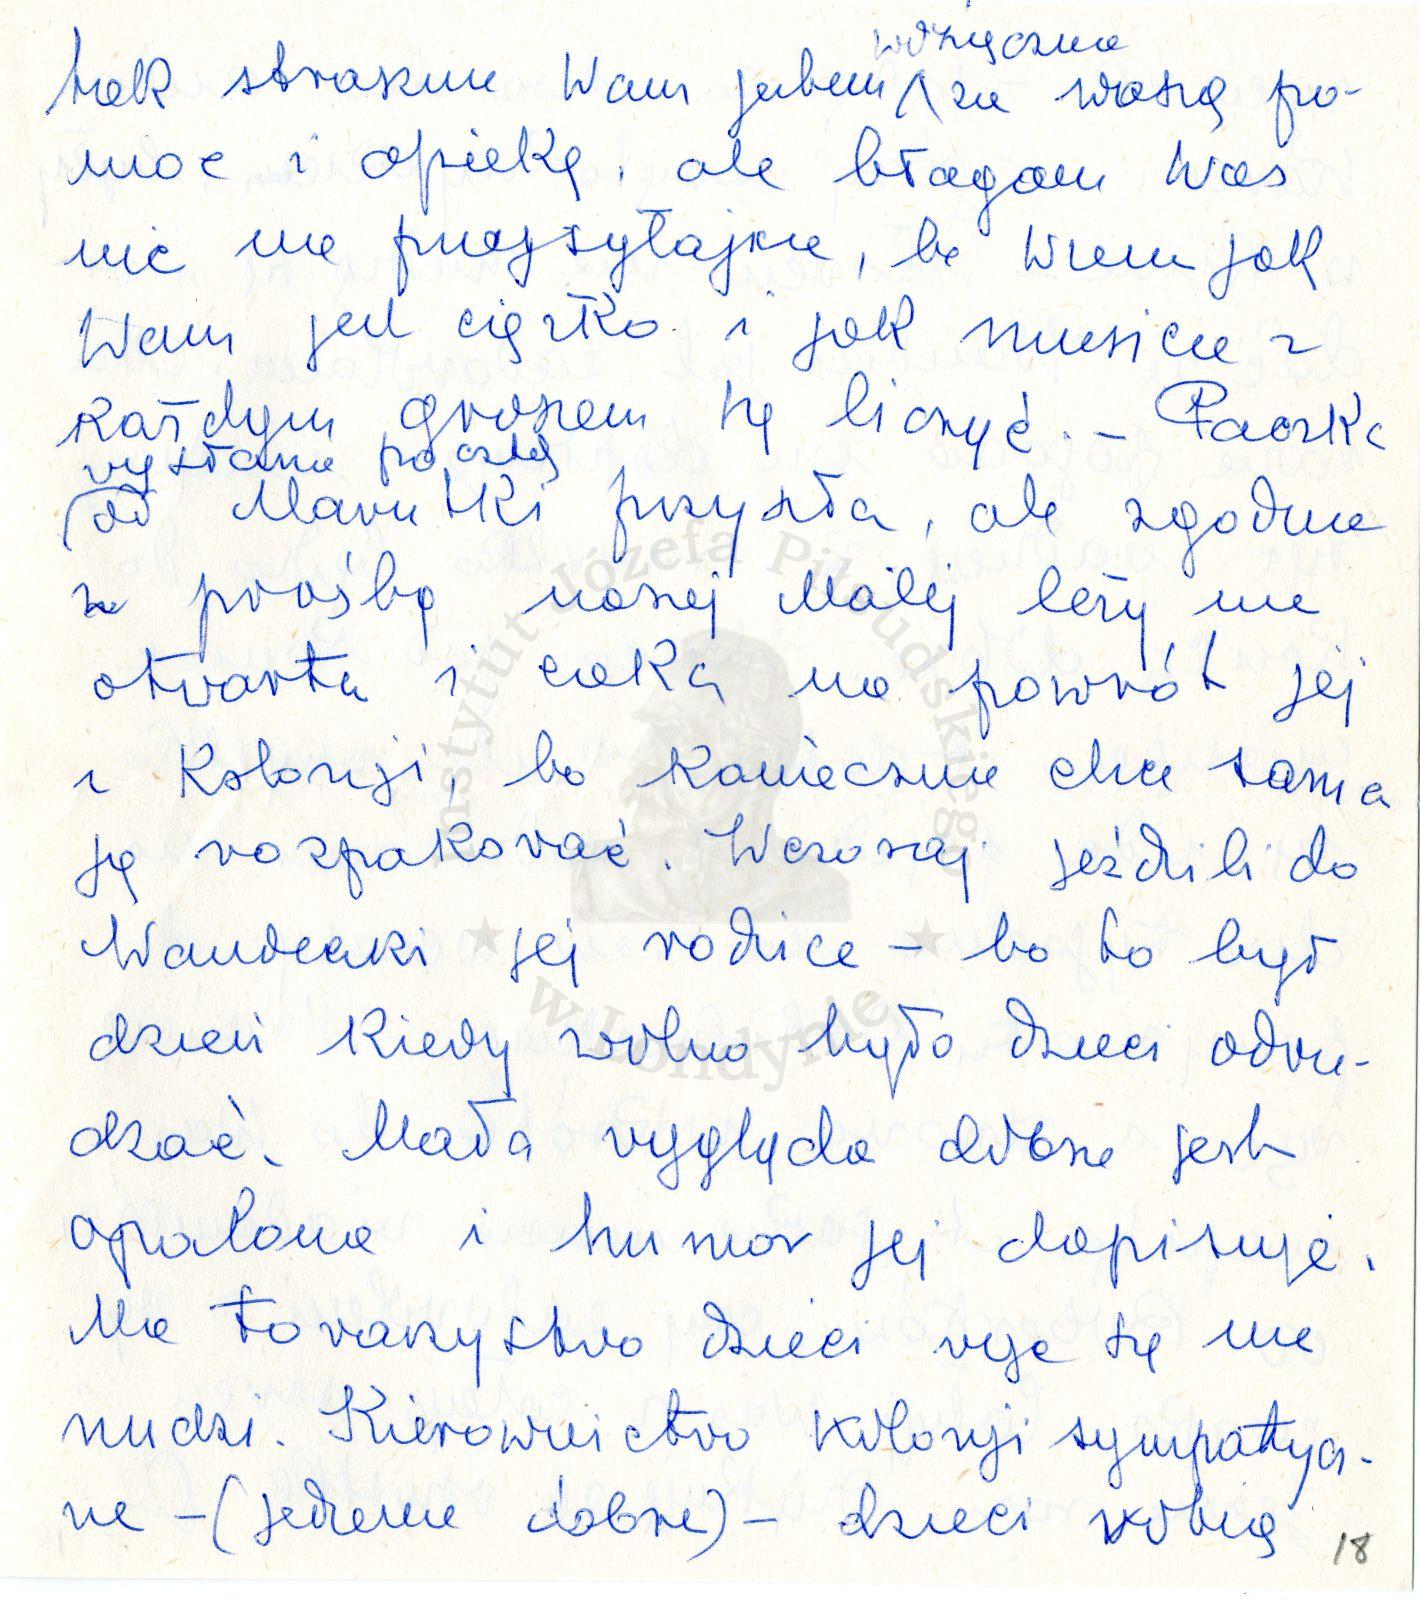 wdzięczna
tak strasznie Wam jestem za waszą po-
moc i opiekę, ale błagam Was
nic nie przysyłajcie, bo wiem jak
Wam jest ciężko i jak musicie z
każdym groszem się liczyć. – Paczka
wysłana pocztą
od Marutki przyszła, ale zgodnie
z prośbą naszej Małej leży nie
otwarta i czeka na powrót jej
z Kolonji, bo koniecznie chce sama
ją rozpakować. Wczoraj jeździli do
Wandeczki jej rodzice – bo to był
dzień kiedy wolno było dzieci odwie-
dzać. Mała wygląda dobrze jest
opalona i humor jej dopisuje.
Ma towarzystwo dzieci więc się nie
nudzi. Kierownictwo kolonji sympatycz-
ne – (jedzenie dobre) – dzieci robią
18
Instytut Józefa Piłsudskiego
w Londynie